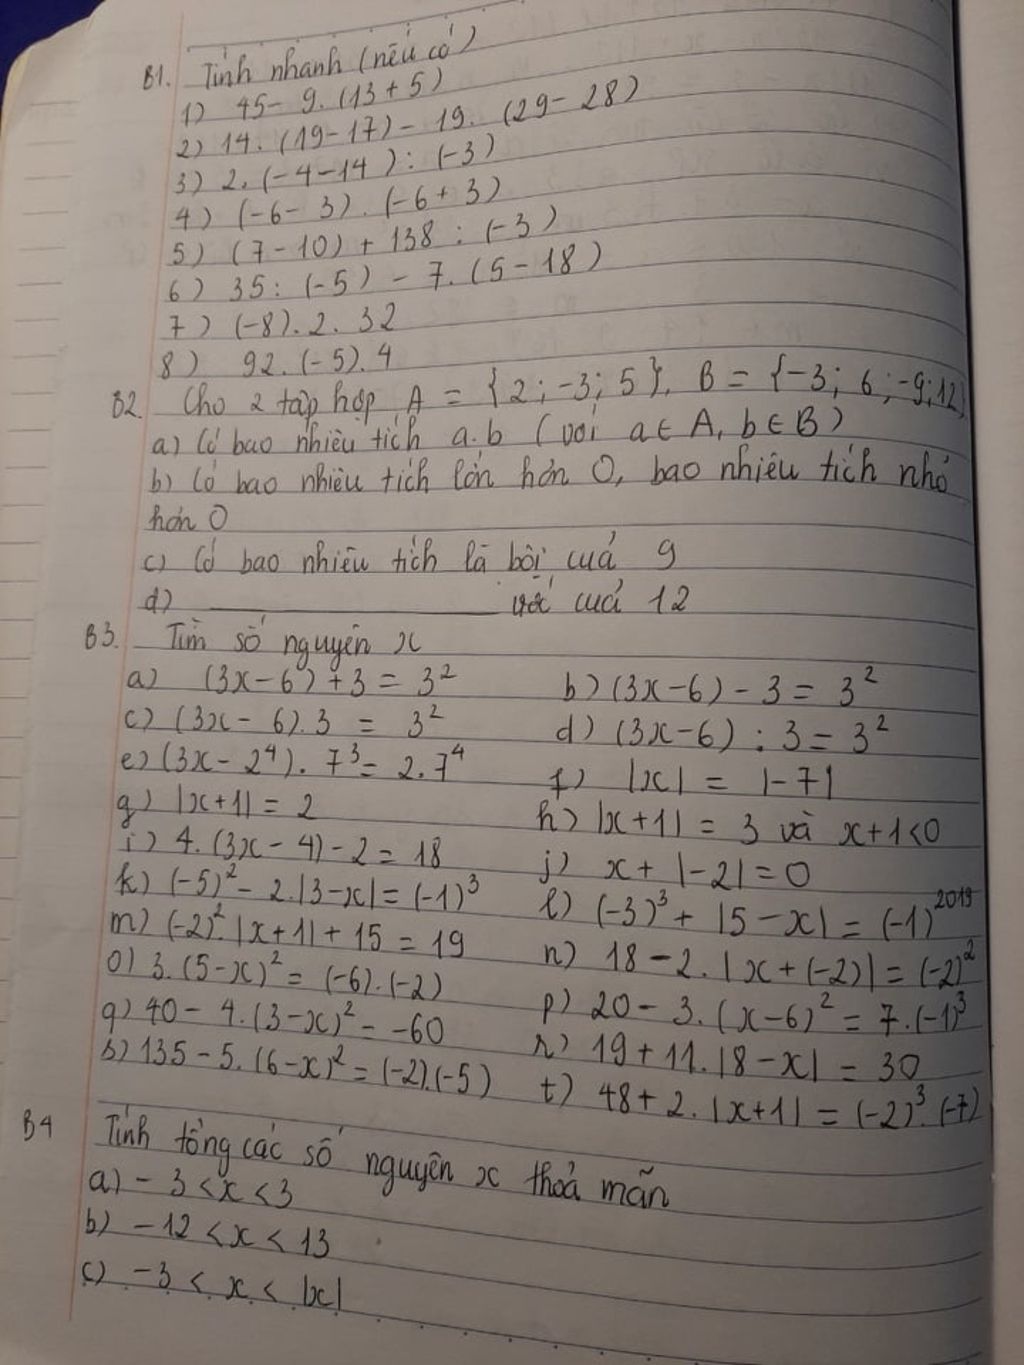 B1. Tính nhanh (nếu có)
1) 45 - 9. (13 + 5)
2) 14. (19 - 17) - 19. (29 - 28)
3) 2. (-4 - 14) : (-3)
4) (-6 - 3). (-6 + 3)
5) (7 - 10) + 138 : (-3)
6) 35 : (-5) - 7. (5 - 18)
7) (-8). 2. 32
8) 92. (-5). 4
B2. Cho 2 tập hợp A = {2; -3; 5}, B = {-3; 6; -9; 12}
a) Có bao nhiêu tích a.b (với a ∈ A, b ∈ B)
b) Có bao nhiêu tích lớn hơn 0, bao nhiêu tích nhỏ
hơn 0
c) Có bao nhiêu tích là bội cuả 9
d) ____________ ước cuả 12
B3. Tìm số nguyên x
a) (3x - 6) + 3 = 3² b) (3x - 6) - 3 = 3²
c) (3x - 6). 3 = 3² d) (3x - 6) : 3 = 3²
e) (3x - 2⁴). 7³ = 2. 7⁴ f) |x| = |-7|
g) |x + 1| = 2 h) |x + 1| = 3 và x + 1 < 0
i) 4. (3x - 4) - 2 = 18 j) x + |-2| = 0
k) (-5)² - 2. |3 - x| = (-1)³ l) (-3)³ + |5 - x| = (-1)²⁰¹⁹
m) (-2)². |x + 1| + 15 = 19 n) 18 - 2. |x + (-2)| = (-2)²
o) 3. (5 - x)² = (-6). (-2) p) 20 - 3. (x - 6)² = 7. (-1)³
q) 40 - 4. (3 - x)² = -60 r) 19 + 11. |8 - x| = 30
s) 135 - 5. (6 - x)² = (-2). (-5) t) 48 + 2. |x + 1| = (-2)³. (-7)
B4 Tính tổng các số nguyên x thoả mãn
a) -3 < x < 3
b) -12 < x < 13
c) -3 < x < |x|